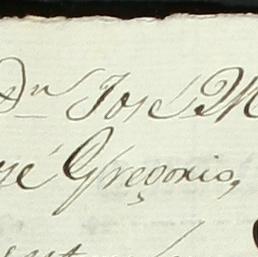 Dn José M
sé Gregorio,